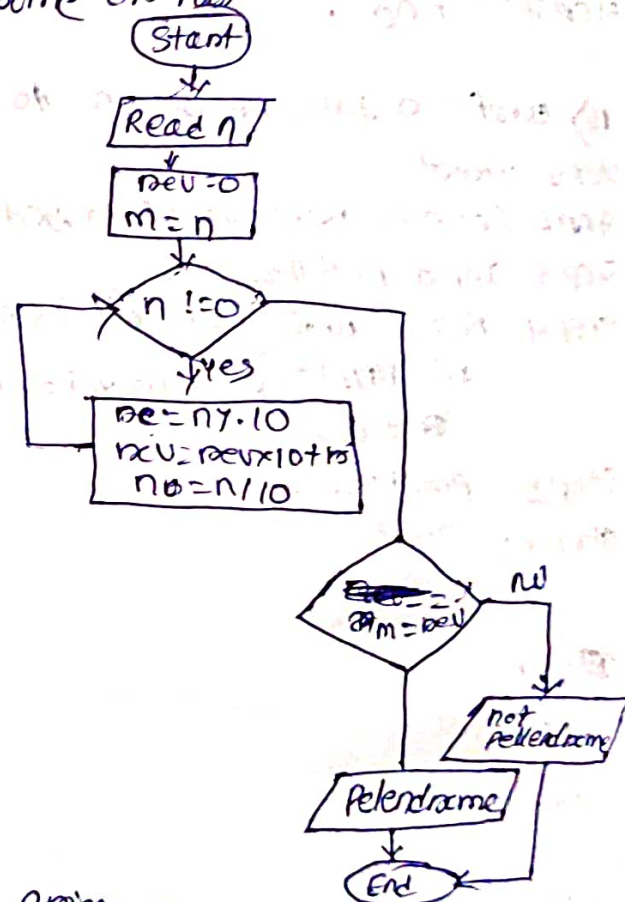 Start
Read n
rev=0
m=n
n !=0
yes
re=n%10
rev=rev×10+r
n=n/10
m=rev
no
not
pellendrome
Pelendrome
End